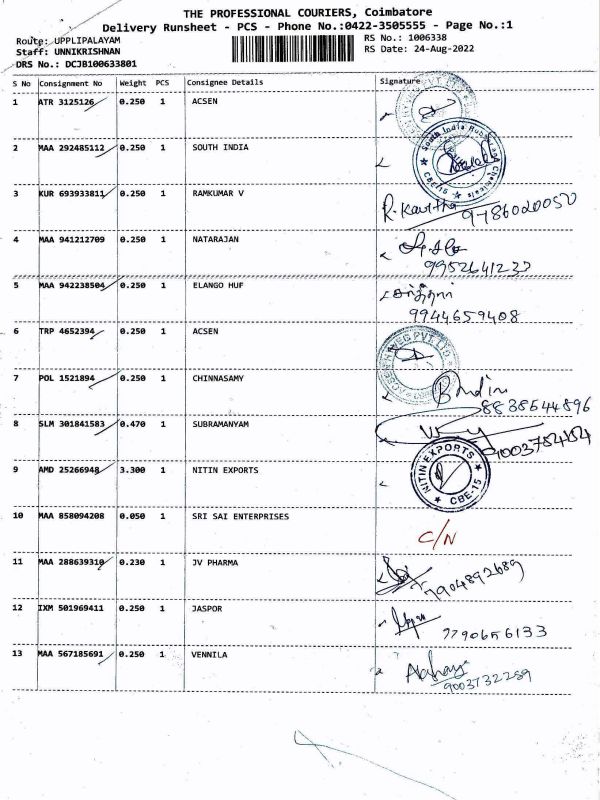 THE PROFESSIONAL COURIERS, Coimbatore
Delivery Runsheet - PCS - Phone No.:0422-3505555 - Page No.:1
Route: UPPLIPALAYAM
RS No.: 1006338
Staff: UNNIKRISHNAN
RS Date: 24-Aug-2022
DRS No.: DCJB100633801
S No Consignment No Weight PCS Consignee Details Signature
1 ATR 3125126 0.250 1 ACSEN
2 MAA 292485112 0.250 1 SOUTH INDIA
South India Rubber and Chemicals
CBE-15
3 KUR 693933811 0.250 1 RAMKUMAR V
R. Kavitha
9786020050
4 MAA 941212709 0.250 1 NATARAJAN
9952641233
5 MAA 942238504 0.250 1 ELANGO HUF
9944659408
6 TRP 4652394 0.250 1 ACSEN
7 POL 1521894 0.250 1 CHINNASAMY
8838544896
8 SLM 301841583 0.470 1 SUBRAMANYAM
9003784184
9 AMD 25266948 3.300 1 NITIN EXPORTS
NITIN EXPORTS
CBE-15
10 MAA 858094208 0.050 1 SRI SAI ENTERPRISES
C/N
11 MAA 288639310 0.230 1 JV PHARMA
7904892689
12 IXM 501969411 0.250 1 JASPOR
7790656133
13 MAA 567185691 0.250 1 VENNILA
9003732289